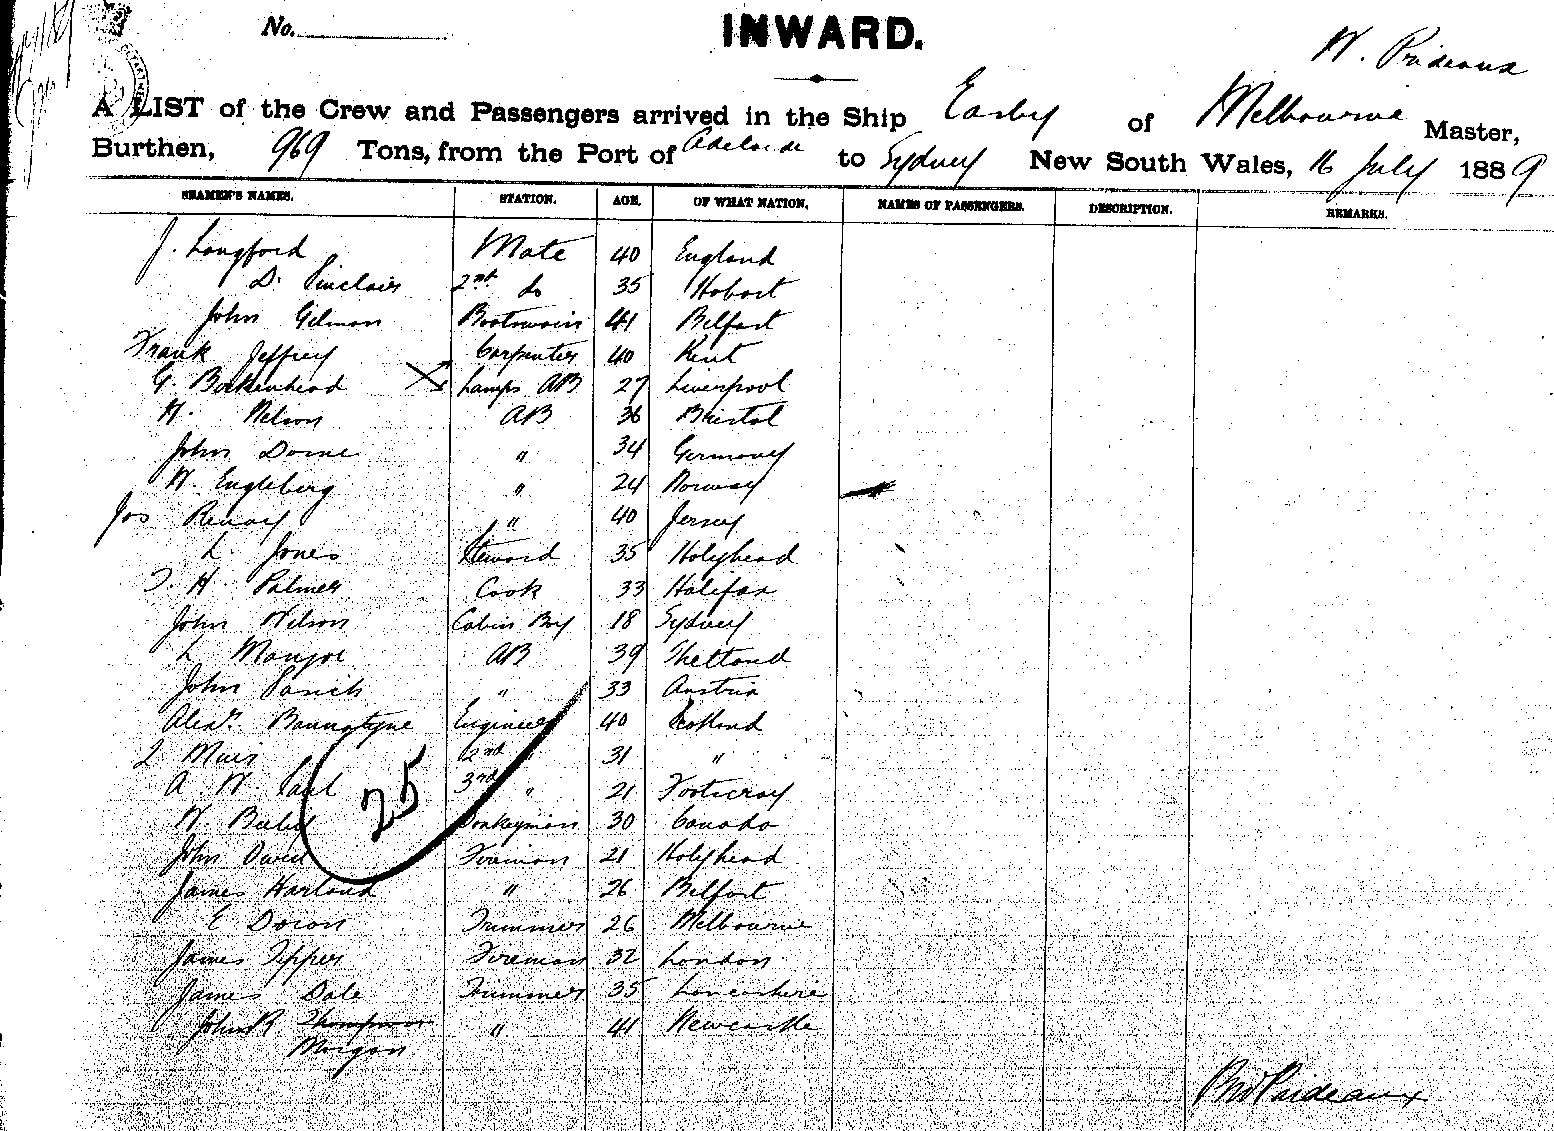 No.
INWARD.
W. Prideaux
A LIST of the Crew and Passengers arrived in the Ship Easby of Melbourne Master,
Burthen, 969 Tons, from the Port of Adelaide to Sydney New South Wales, 16 July 1889
SEAMEN'S NAMES. STATION. AGE. OF WHAT NATION. NAMES OF PASSENGERS. DESCRIPTION. REMARKS.
J. Langford Mate 40 England
D. Sinclair 2nd do 35 Hobart
John Gilman Boatswain 41 Belfast
Frank Jeffrey Carpenter 40 Kent
G. Birkenhead Lamps AB 27 Liverpool
H. Nelson AB 36 Bristol
John Dorne " 34 Germany
W. Engleberg " 24 Norway
Jos Renoy " 40 Jersey
L. Jones Steward 35 Holyhead
T. H. Palmer Cook 33 Halifax
John Wilson Cabin Boy 18 Sydney
L AB 39 Shetland
John " 33 Austria
Alexr. Bannatyne Engineer 40 Scotland
J Muir 2nd " 31 "
A W Paul 3rd " 21 Footscray
W. Bailey Donkeyman 30 Canada
John Owen Fireman 21 Holyhead
James Harland " 26 Belfast
E Doran Trimmer 26 Melbourne
James Tipper Fireman 32 London
James Dale Trimmer 35 Lancashire
John R Thompson " 41 Newcastle
Morgan
25
Prideaux